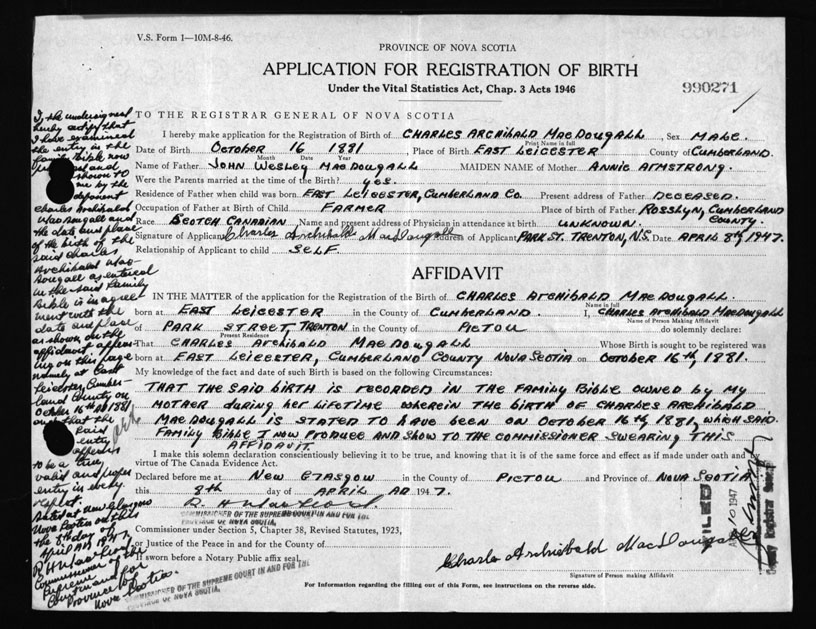 V.S. Form 1—10M-8-46.
PROVINCE OF NOVA SCOTIA
APPLICATION FOR REGISTRATION OF BIRTH
Under the Vital Statistics Act, Chap. 3 Acts 1946
990271
TO THE REGISTRAR GENERAL OF NOVA SCOTIA
I hereby make application for the Registration of Birth of CHARLES ARCHIBALD MACDOUGALL, Sex MALE.
Print Name in full
Date of Birth OCTOBER 16 1881, Place of Birth EAST LEICESTER County of CUMBERLAND.
Month Date Year
Name of Father JOHN WESLEY MACDOUGALL MAIDEN NAME of Mother ANNIE ARMSTRONG.
Were the Parents married at the time of the Birth? YES.
Residence of Father when child was born EAST LEICESTER, CUMBERLAND CO. Present address of Father DECEASED.
Occupation of Father at Birth of Child FARMER Place of birth of Father ROSSLYN, CUMBERLAND COUNTY.
Race SCOTCH CANADIAN Name and Present address of Physician in attendance at birth UNKNOWN.
Signature of Applicant Charles Archibald MacDougall Address of Applicant PARK ST. TRENTON, N.S. Date APRIL 8th, 1947.
Relationship of Applicant to child SELF.
AFFIDAVIT
IN THE MATTER of the application for the Registration of Birth of CHARLES ARCHIBALD MACDOUGALL.
Name in full
born at EAST LEICESTER in the County of CUMBERLAND. I, CHARLES ARCHIBALD MACDOUGALL
Name of Person Making Affidavit
of PARK STREET, TRENTON in the County of PICTOU do solemnly declare:
Present Residence
That CHARLES ARCHIBALD MACDOUGALL Whose Birth is sought to be registered was
born at EAST LEICESTER, CUMBERLAND COUNTY NOVA SCOTIA on OCTOBER 16th, 1881.
My knowledge of the fact and date of such Birth is based on the following Circumstances:
THAT THE SAID BIRTH IS RECORDED IN THE FAMILY BIBLE OWNED BY MY
MOTHER DURING HER LIFETIME WHEREIN THE BIRTH OF CHARLES ARCHIBALD
MACDOUGALL IS STATED TO HAVE BEEN ON OCTOBER 16th, 1881, WHICH SAID
FAMILY BIBLE I NOW PRODUCE AND SHOW TO THE COMMISSIONER SWEARING THIS
AFFIDAVIT.
I make this solemn declaration conscientiously believing it to be true, and knowing that it is of the same force and effect as if made under oath and by
virtue of The Canada Evidence Act.
Declared before me at NEW GLASGOW in the County of PICTOU and Province of NOVA SCOTIA
this 8th day of APRIL AD 1947.
COMMISSIONER OF THE SUPREME COURT IN AND FOR THE
PROVINCE OF NOVA SCOTIA,
Commissioner under Section 5, Chapter 38, Revised Statutes, 1923,
or Justice of the Peace in and for the County of
If sworn before a Notary Public affix seal.
COMMISSIONER OF THE SUPREME COURT IN AND FOR THE
PROVINCE OF NOVA SCOTIA,
Charles Archibald MacDougall
Signature of Person making Affidavit
For Information regarding the filling out of this Form, see instructions on the reverse side.
FILED
10 1947
Deputy Registrar General
I, the undersigned
hereby certify that
I have examined
the entry in the
family Bible now
and
shown to
me by the
deponent
Charles Archibald
MacDougall and
the date and place
of the birth of the
said Charles
Archibald Mac-
Dougall as entered
in the said family
Bible is in agree-
ment with the
date and place
as shown on the
affidavit appear-
ing on this page
namely at East
Leicester, Cumber-
land County on
October 16th AD 1881
and that the
said
entry
appears
to be a true
valid and proper
entry in every
respect.
Dated at New Glasgow
Nova Scotia on this
the 8th day of
April AD 1947.
Commissioner of the
Supreme
Court in and for
Province of
Nova Scotia.